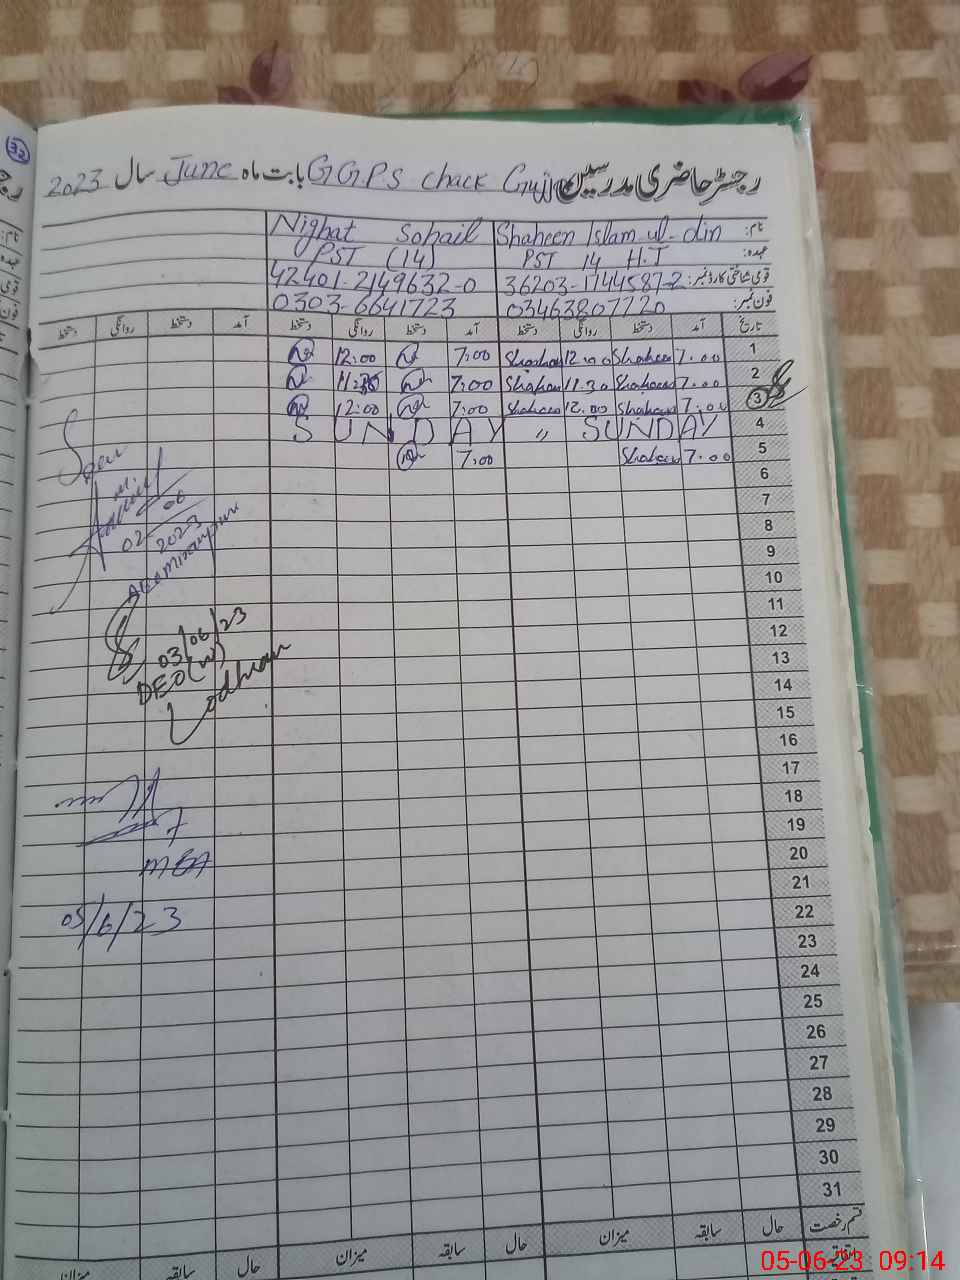 32
رجسٹر حاضری مدرسین GGPS chack Gujj بابت ماہ June سال 2023
نام: Shaheen Islam-ul-din Nighat Sohail
عہدہ: PST 14 H.T PST (14)
قومی شناختی کارڈ نمبر: 36203-1744587-2 42401-2149632-0
فون نمبر: 03463807720 0303-6641723
تاریخ آمد دستخط روانگی دستخط آمد دستخط روانگی دستخط آمد دستخط روانگی دستخط
1 7.00 Shaheen 12.00 Shaheen 7:00 12:00
2 7.00 Shaheen 11.30 Shaheen 7:00 11:30
3 7.00 Shaheen 12.00 Shaheen 7:00 12:00
4 SUNDAY " SUNDAY
5 7.00 Shaheen 7:00
6
7
8
9
10
11
12
13
14
15
16
17
18
19
20
21
22
23
24
25
26
27
28
29
30
31
Seen
02-06
2023
03/06/23
DEO (W)
Lodhran
MEA
05/6/23
قسم رخصت حال سابقہ میزان حال سابقہ میزان حال سابقہ میزان
05-06-23 09:14